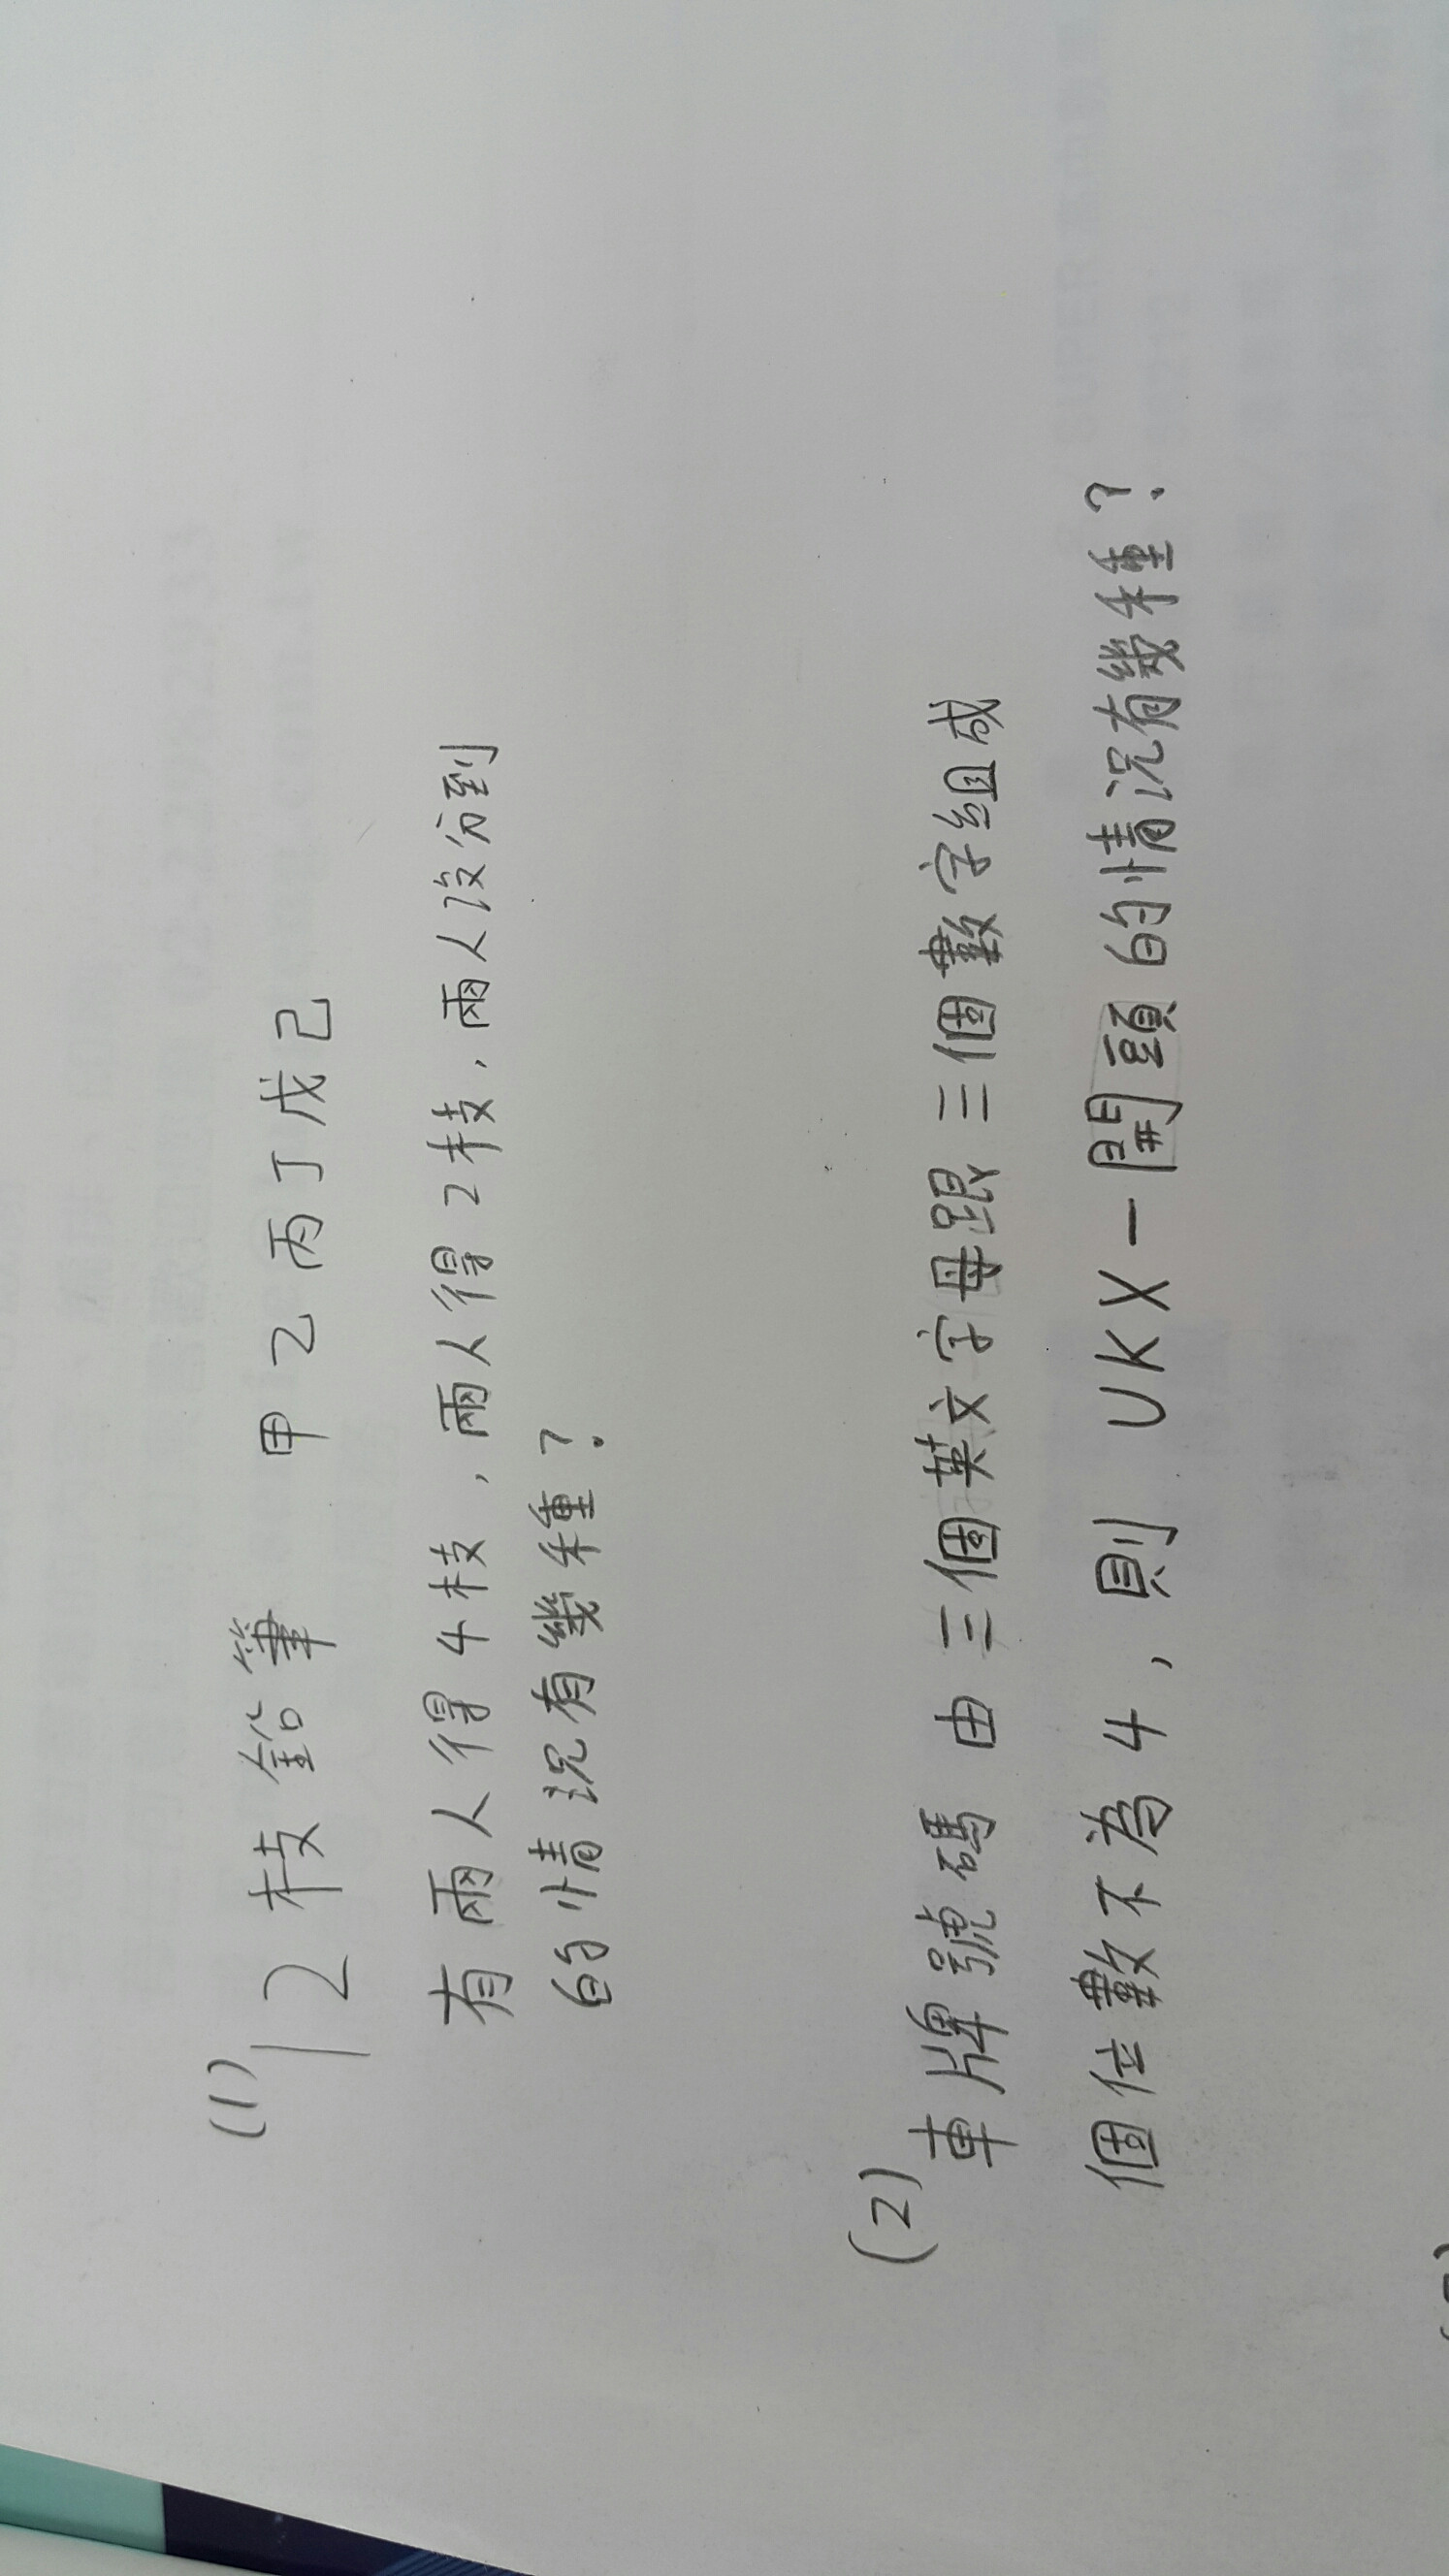 (1)
12枝鉛筆 甲乙丙丁戊己
有兩人得4枝,兩人得2枝,兩人沒分到
的情況有幾種?
(2)
車牌號碼 由三個英文字母跟三個數字組成
個位數不為4,則 UKX-開頭的情況有幾種?